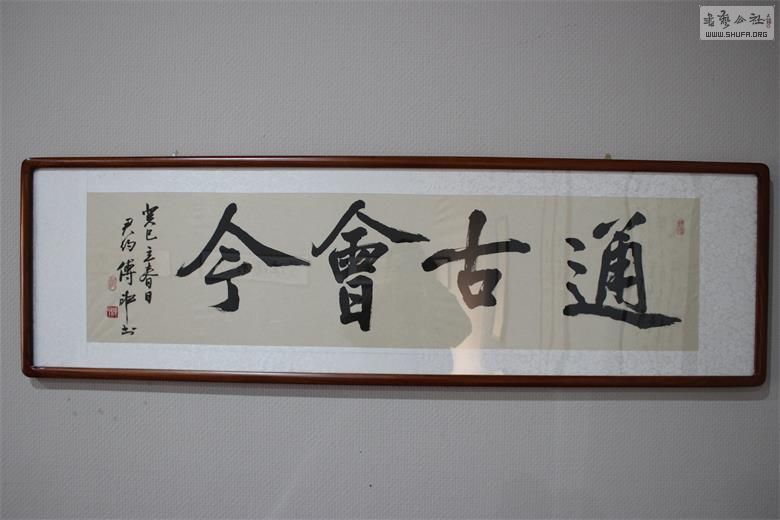 通古會今
癸巳立春日
君約傅申書
書藝公社
WWW.SHUFA.ORG